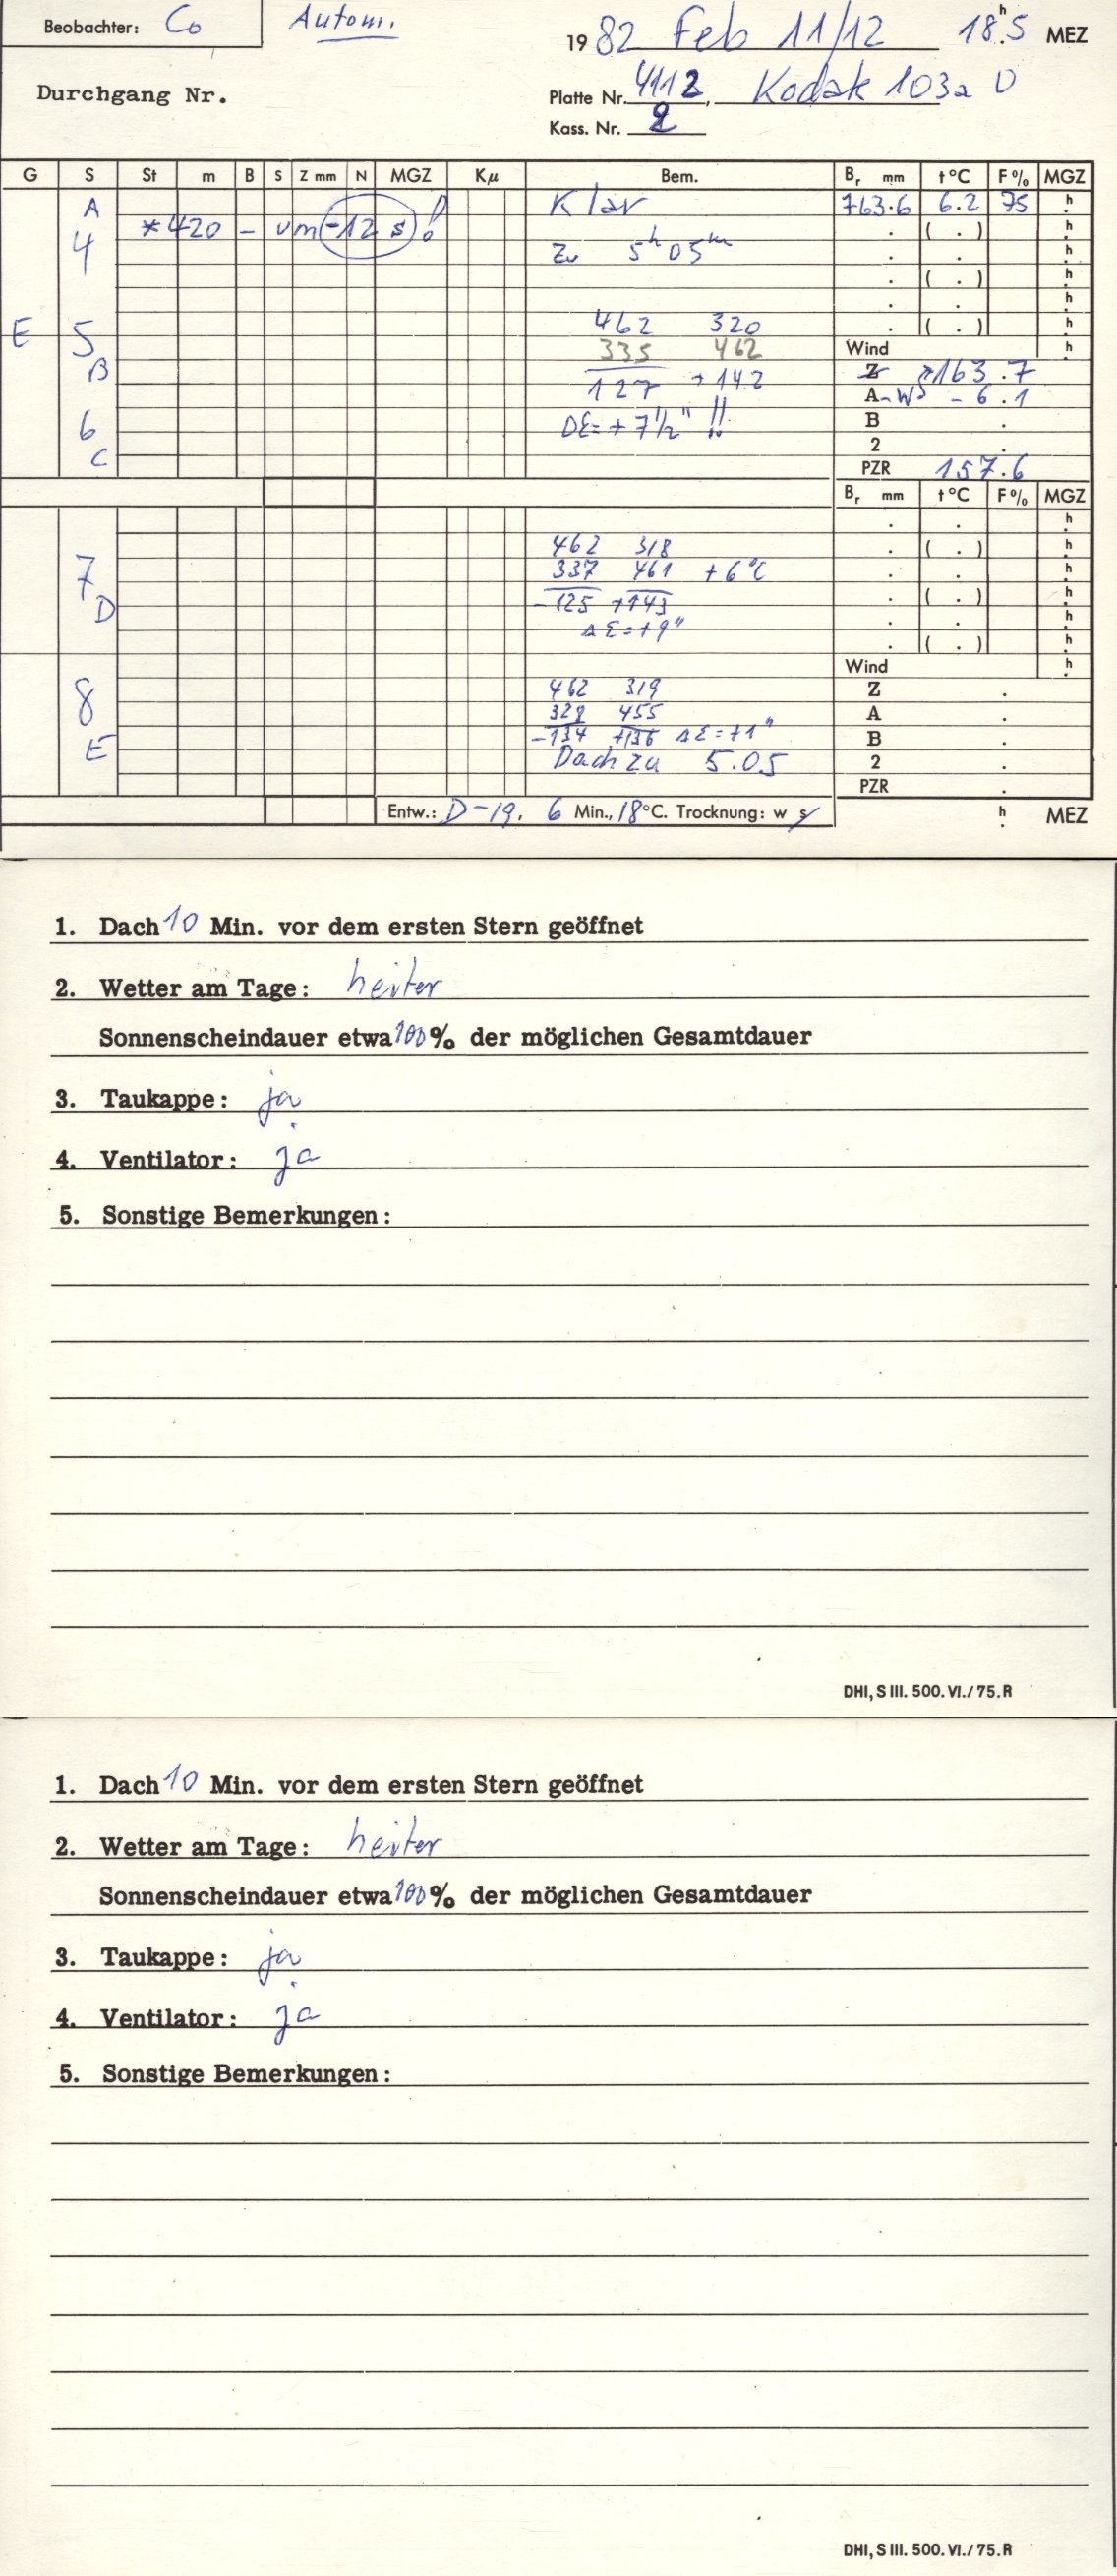 Beobachter: Co Autom.
19 82 Feb 11/12 18h.5 MEZ
Durchgang Nr.
Platte Nr. 4112, Kodak 103a O
Kass. Nr. 2
G S St m B S Z mm N MGZ Kµ Bem. Br mm t °C F % MGZ
A Klar 763.6 6.2 75 h
4 *420 - um -12 s ! ( . ) h
Zu 5h 05m . h
( . ) h
. h
E 5 462 320 ( . ) h
335 462 Wind h
B 127 +142 Z 163.7
A-W - 6.1
6 DE = + 7 1/2" !! B .
2 .
C PZR 157.6
Br mm t °C F % MGZ
. . h
462 318 . ( . ) h
7 337 461 +6°C . . h
D -125 +143 . ( . ) h
ΔE = +9" . . h
. ( . ) h
Wind h
8 462 319 Z .
328 455 A .
E -134 +136 ΔE = +1" B .
Dach zu 5.05 2 .
PZR .
Entw.: D-19, 6 Min., 18°C. Trocknung: w s h . MEZ
1. Dach 10 Min. vor dem ersten Stern geöffnet
2. Wetter am Tage: heiter
Sonnenscheindauer etwa 100% der möglichen Gesamtdauer
3. Taukappe: ja
4. Ventilator: ja
5. Sonstige Bemerkungen:
DHI, S III. 500. VI./75. R
1. Dach 10 Min. vor dem ersten Stern geöffnet
2. Wetter am Tage: heiter
Sonnenscheindauer etwa 100% der möglichen Gesamtdauer
3. Taukappe: ja
4. Ventilator: ja
5. Sonstige Bemerkungen:
DHI, S III. 500. VI./75. R